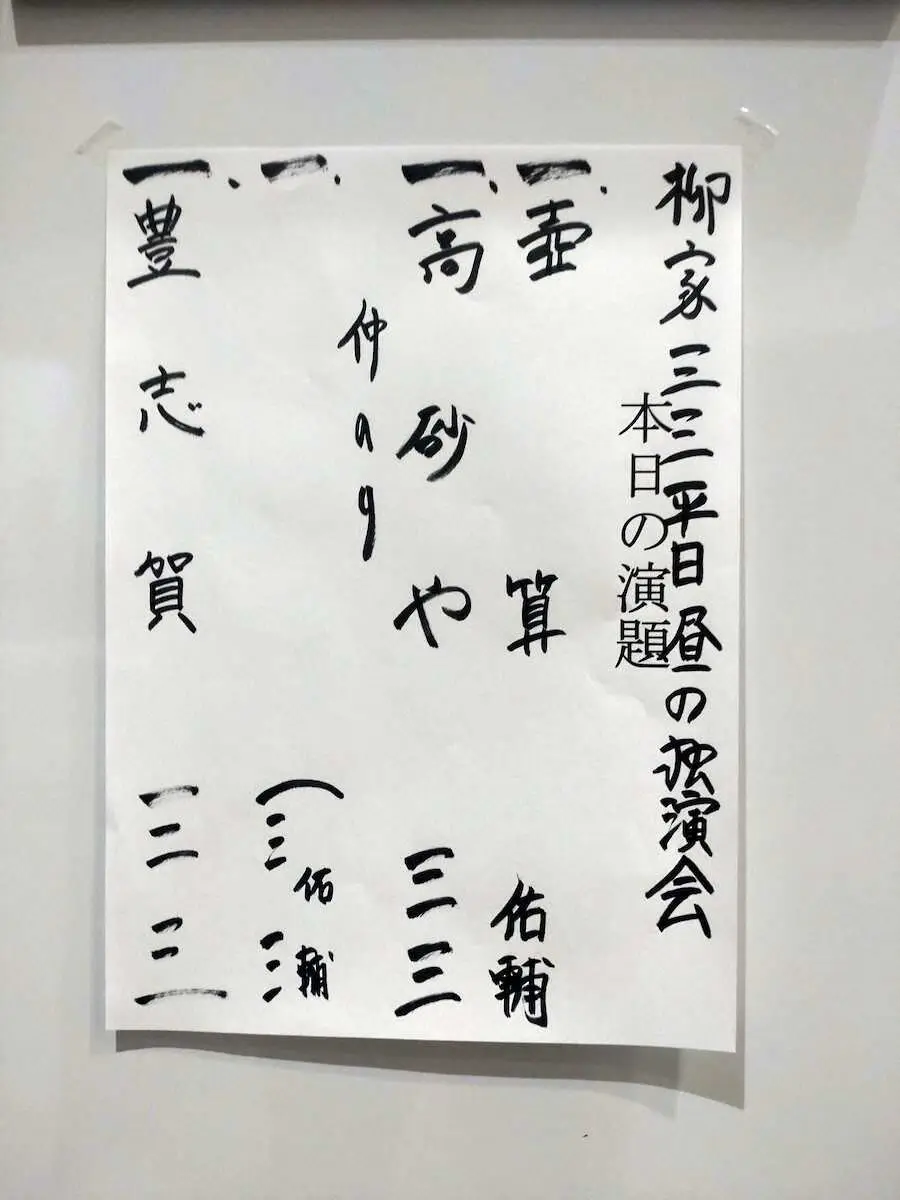 柳家三三平日昼の独演会
本日の演題
一.壺算 佑輔
一.高砂や 三三
仲入り
一. (三三 佑輔
一.豊志賀 三三